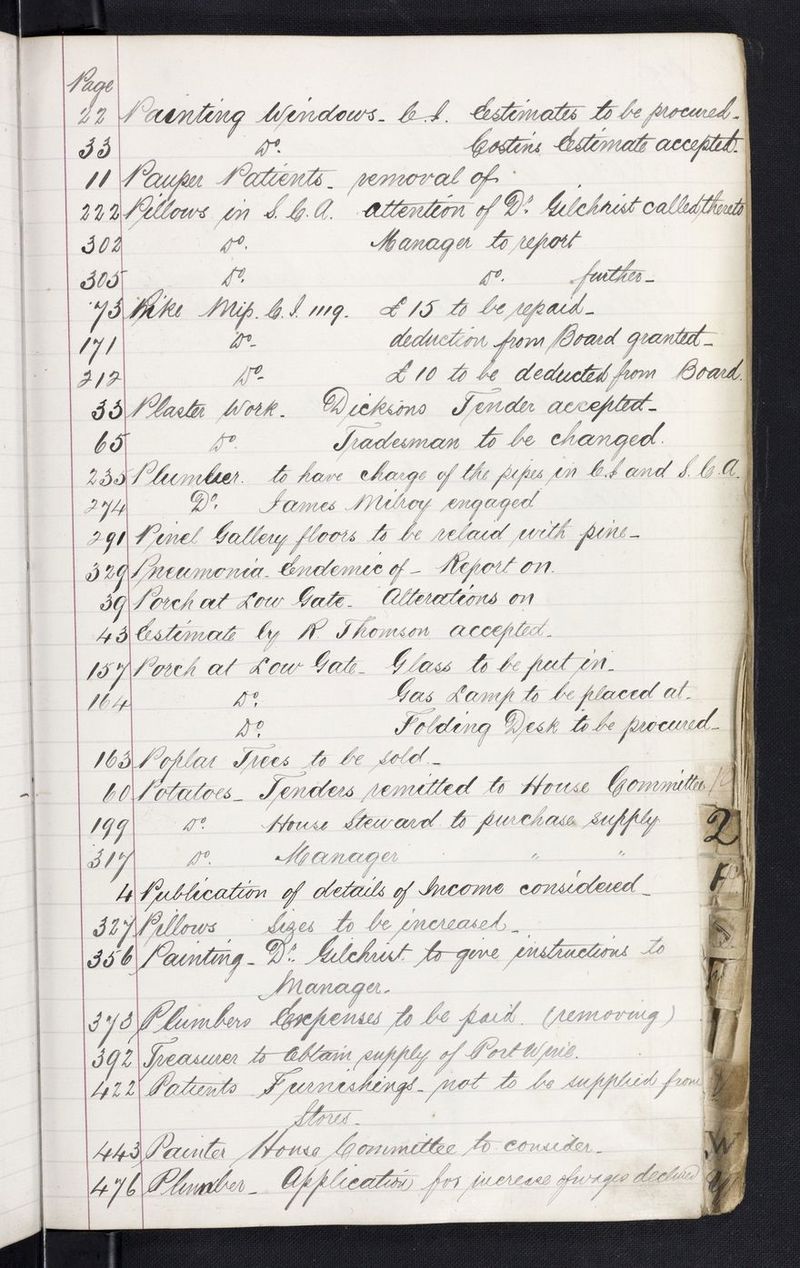 Page
22 Painting Windows - C.I. Estimates to be procured -
33 Do. Costins Estimate accepted -
11 Pauper Patients - removal of
222 Pillows in S.C.A. attention of Dr. Gilchrist called thereto
302 Do. Manager to report
305 Do. Do. further -
73 Pike Mip. C.I. 1119. £15 to be repaid -
171 Do - deduction from Board granted -
212 Do - £10 to be deducted from Board.
33 Plaster Work - Dicksons Tender accepted -
65 Do. Tradesman to be changed.
235 Plumber. to have charge of the pipes in C.I and S.C.A.
274 Do. James Milroy engaged
291 Pinel Gallery floors to be relaid with pine -
329 Pneumonia - Endemic of - Report on.
39 Porch at Low Gate - Alterations on
43 Estimate by R Thomson accepted -
157 Porch at Low Gate - Glass to be put in -
164 Do. Gas Lamp to be placed at -
Do. Folding Desk to be procured -
163 Poplar Trees to be sold -
60 Potatoes - Tenders remitted to House Committee
199 Do. House Steward to purchase supply
317 Do. Manager " "
4 Publication of details of Income considered -
327 Pillows Sizes to be increased -
356 Painting - Dr. Gilchrist to give instructions to
Manager.
373 Plumbers Expenses to be paid. (removing)
392 Treasurer to Obtain supply of Port Wine.
422 Patients Furnishings - not to be supplied from
Stores -
443 Painter House Committee to consider -
476 Plumber - Application for increase of wages declined
W